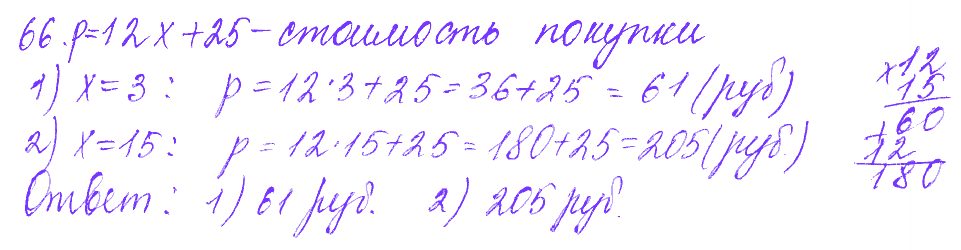 66. p=12x+25 – стоимость покупки
1) x=3: p=12·3+25=36+25 = 61 (руб)
2) x=15: p=12·15+25=180+25=205 (руб.)
Ответ: 1) 61 руб. 2) 205 руб.
×12
15
60
+12
180